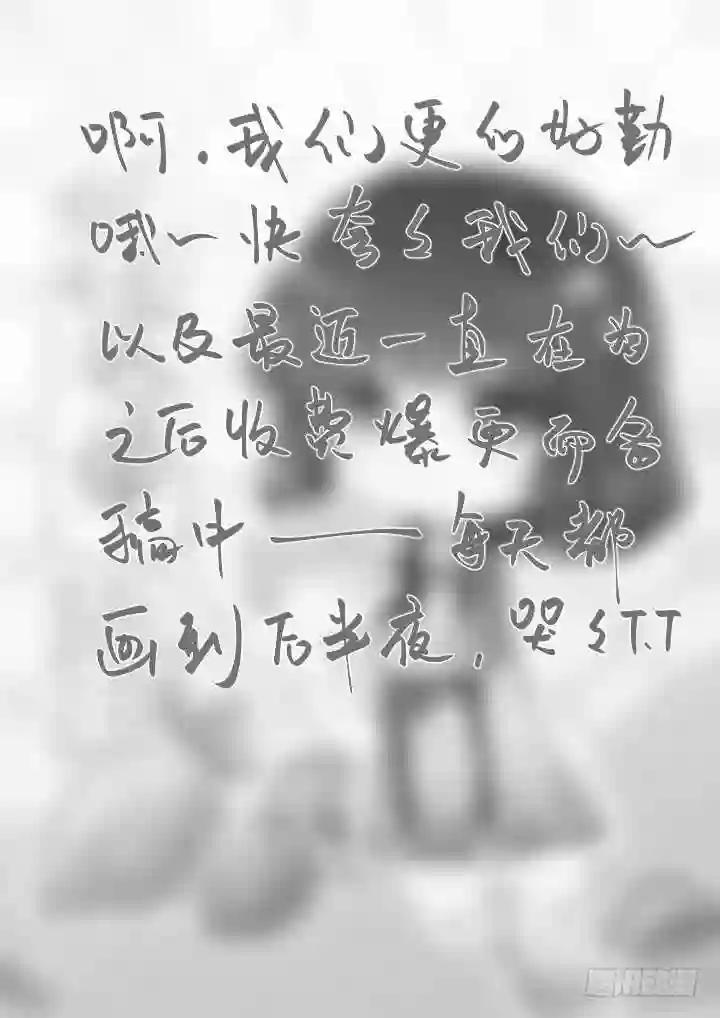 啊，我们更的好勤
哦～快夸夸我们～
以及最近一直在为
之后收费爆更而备
稿中——每天都
画到后半夜，哭哭T.T